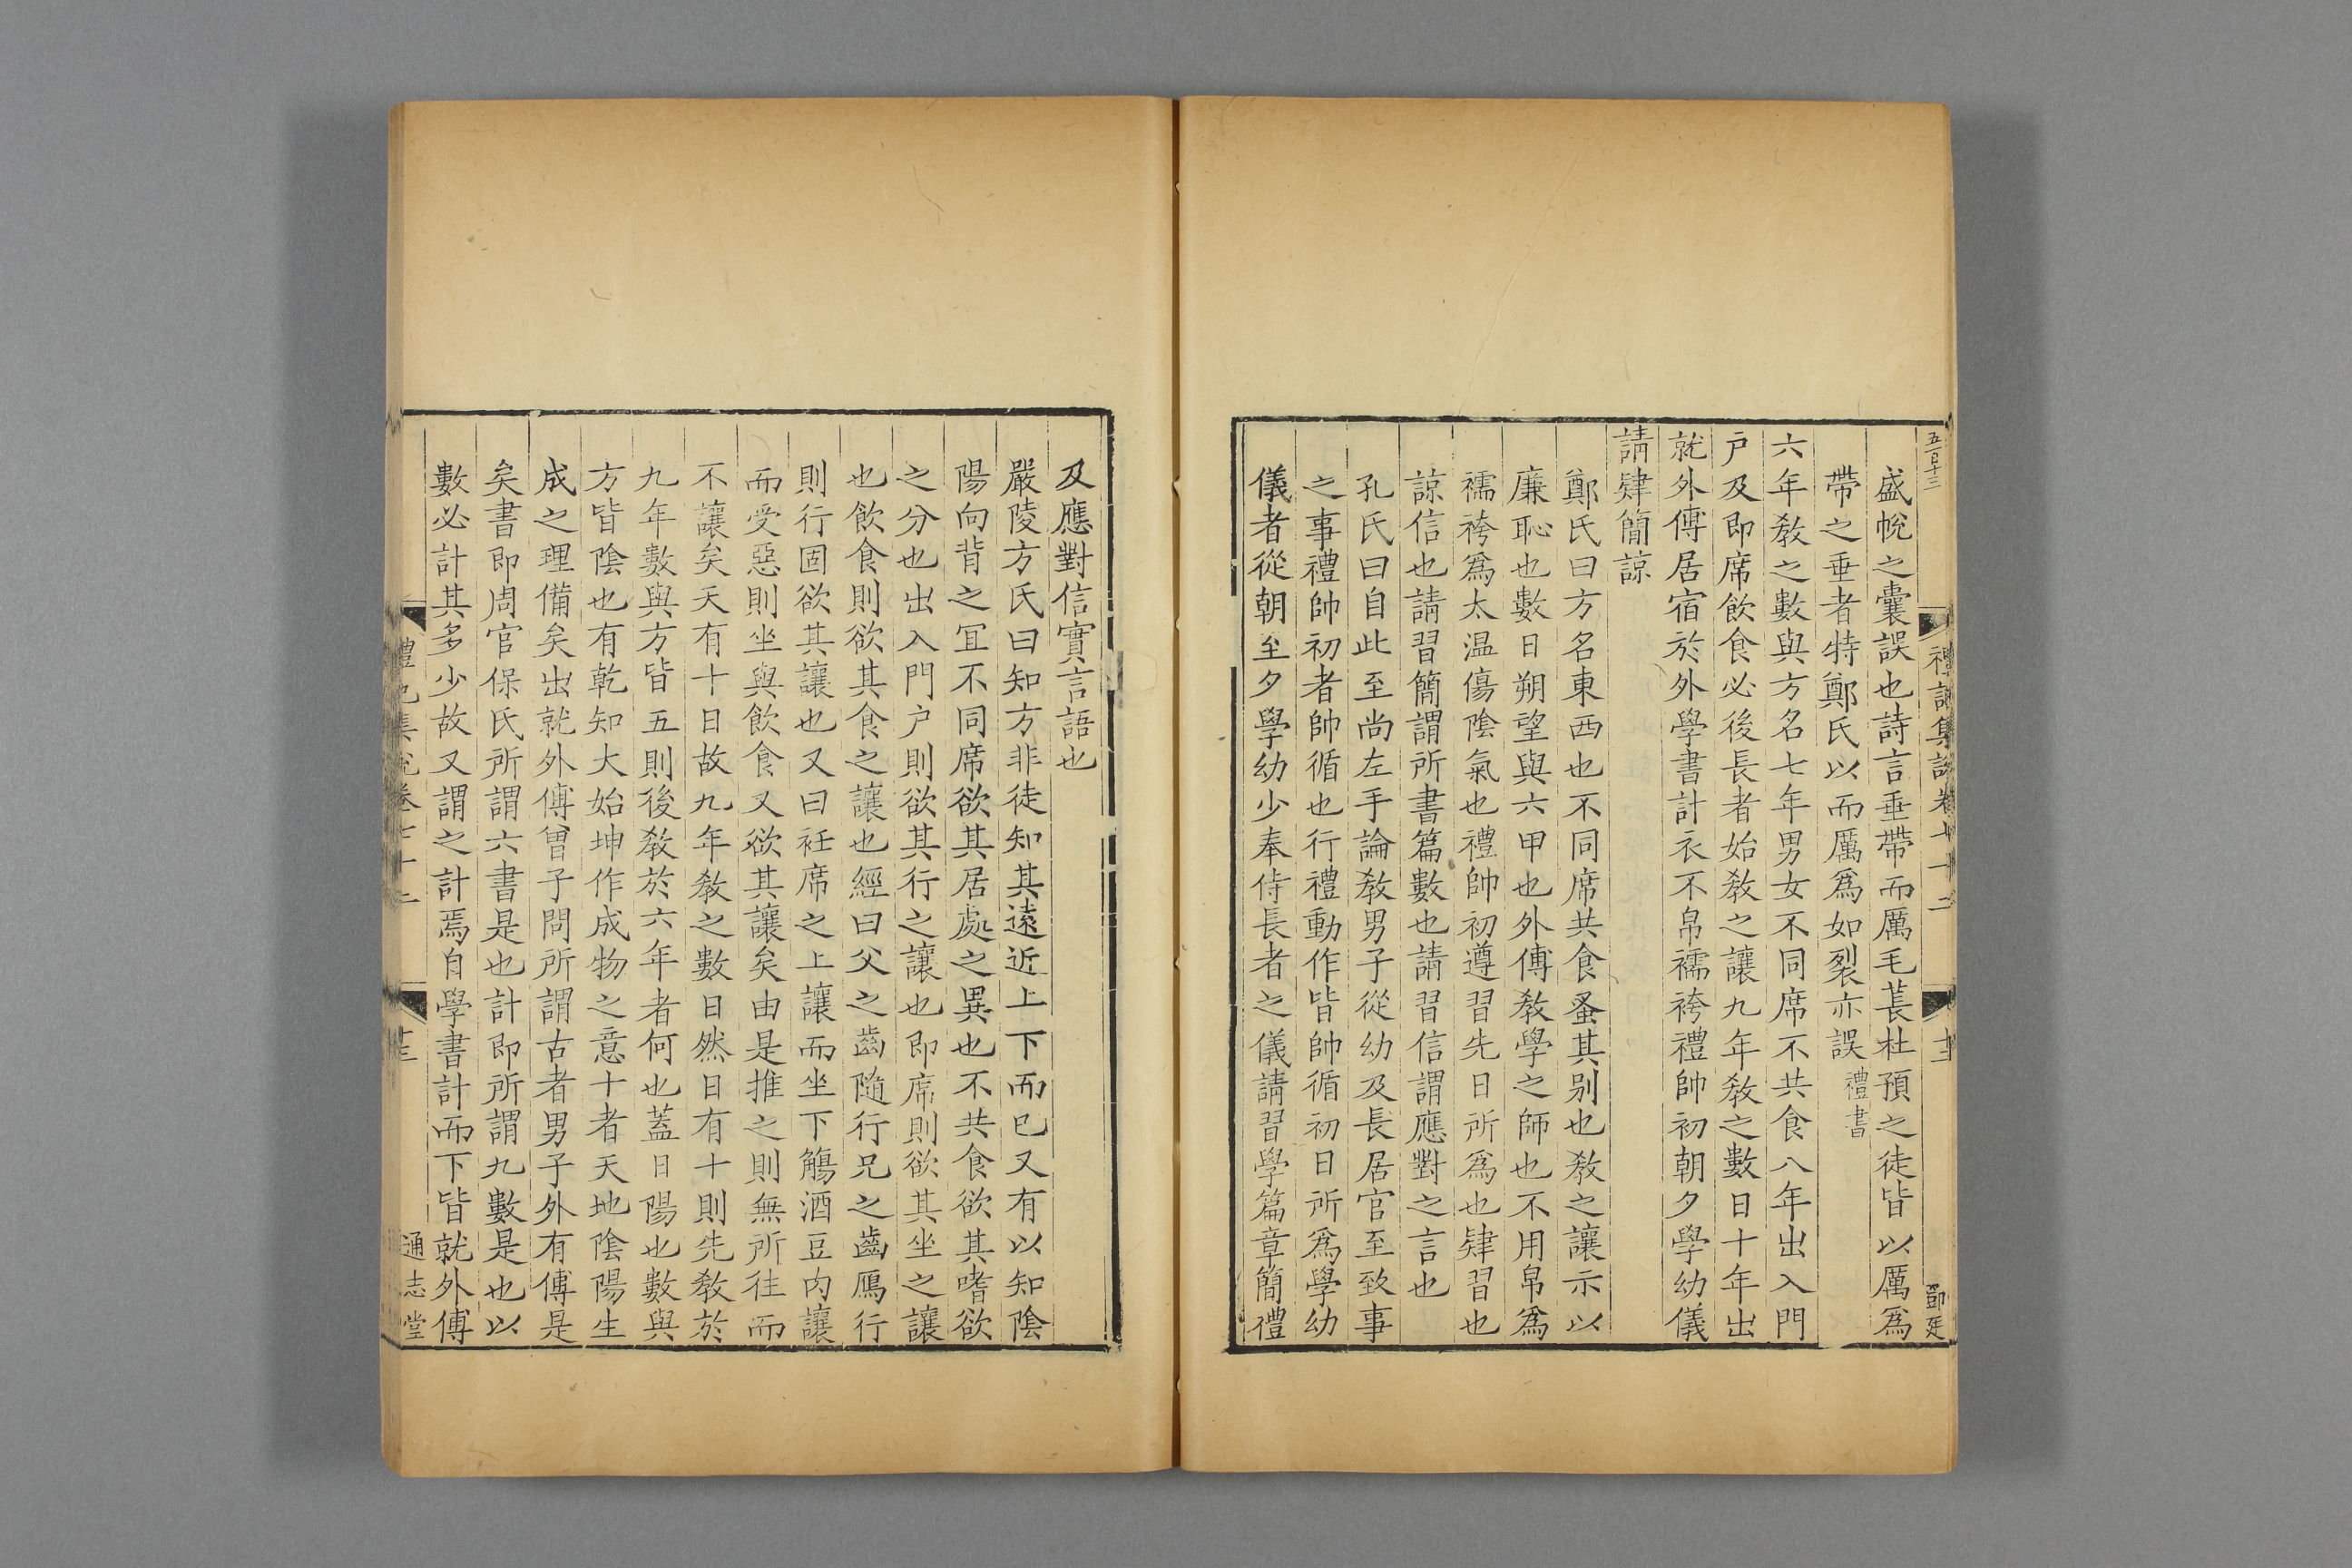 五百十三
禮記集說卷七十二
十三
鄧廷
盛帨之囊誤也詩言垂帶而厲毛萇杜預之徒皆以厲爲
帶之垂者特鄭氏以而厲爲如裂亦誤禮書
六年敎之數與方名七年男女不同席不共食八年出入門
戶及即席飲食必後長者始敎之讓九年敎之數日十年出
就外傅居宿於外學書計衣不帛襦袴禮帥初朝夕學幼儀
請肄簡諒
鄭氏曰方名東西也不同席共食蚤其别也敎之讓示以
廉恥也數日朔望與六甲也外傅敎學之師也不用帛爲
襦袴爲太温傷陰氣也禮帥初遵習先日所爲也肄習也
諒信也請習簡謂所書篇數也請習信謂應對之言也
孔氏曰自此至尚左手論敎男子從幼及長居官至致事
之事禮帥初者帥循也行禮動作皆帥循初日所爲學幼
儀者從朝至夕學幼少奉侍長者之儀請習學篇章簡禮
及應對信實言語也
嚴陵方氏曰知方非徒知其遠近上下而已又有以知陰
陽向背之冝不同席欲其居處之異也不共食欲其嗜欲
之分也出入門户則欲其行之讓也即席則欲其坐之讓
也飲食則欲其食之讓也經曰父之齒隨行兄之齒鴈行
則行固欲其讓也又曰衽席之上讓而坐下觴酒豆肉讓
而受惡則坐與飲食又欲其讓矣由是推之則無所往而
不讓矣天有十日故九年敎之數日然日有十則先敎於
九年數與方皆五則後敎於六年者何也蓋日陽也數與
方皆陰也有乾知大始坤作成物之意十者天地陰陽生
成之理備矣出就外傅曾子問所謂古者男子外有傅是
矣書即周官保氏所謂六書是也計即所謂九數是也以
數必計其多少故又謂之計焉自學書計而下皆就外傅
禮記集說卷七十二
十三
通志堂